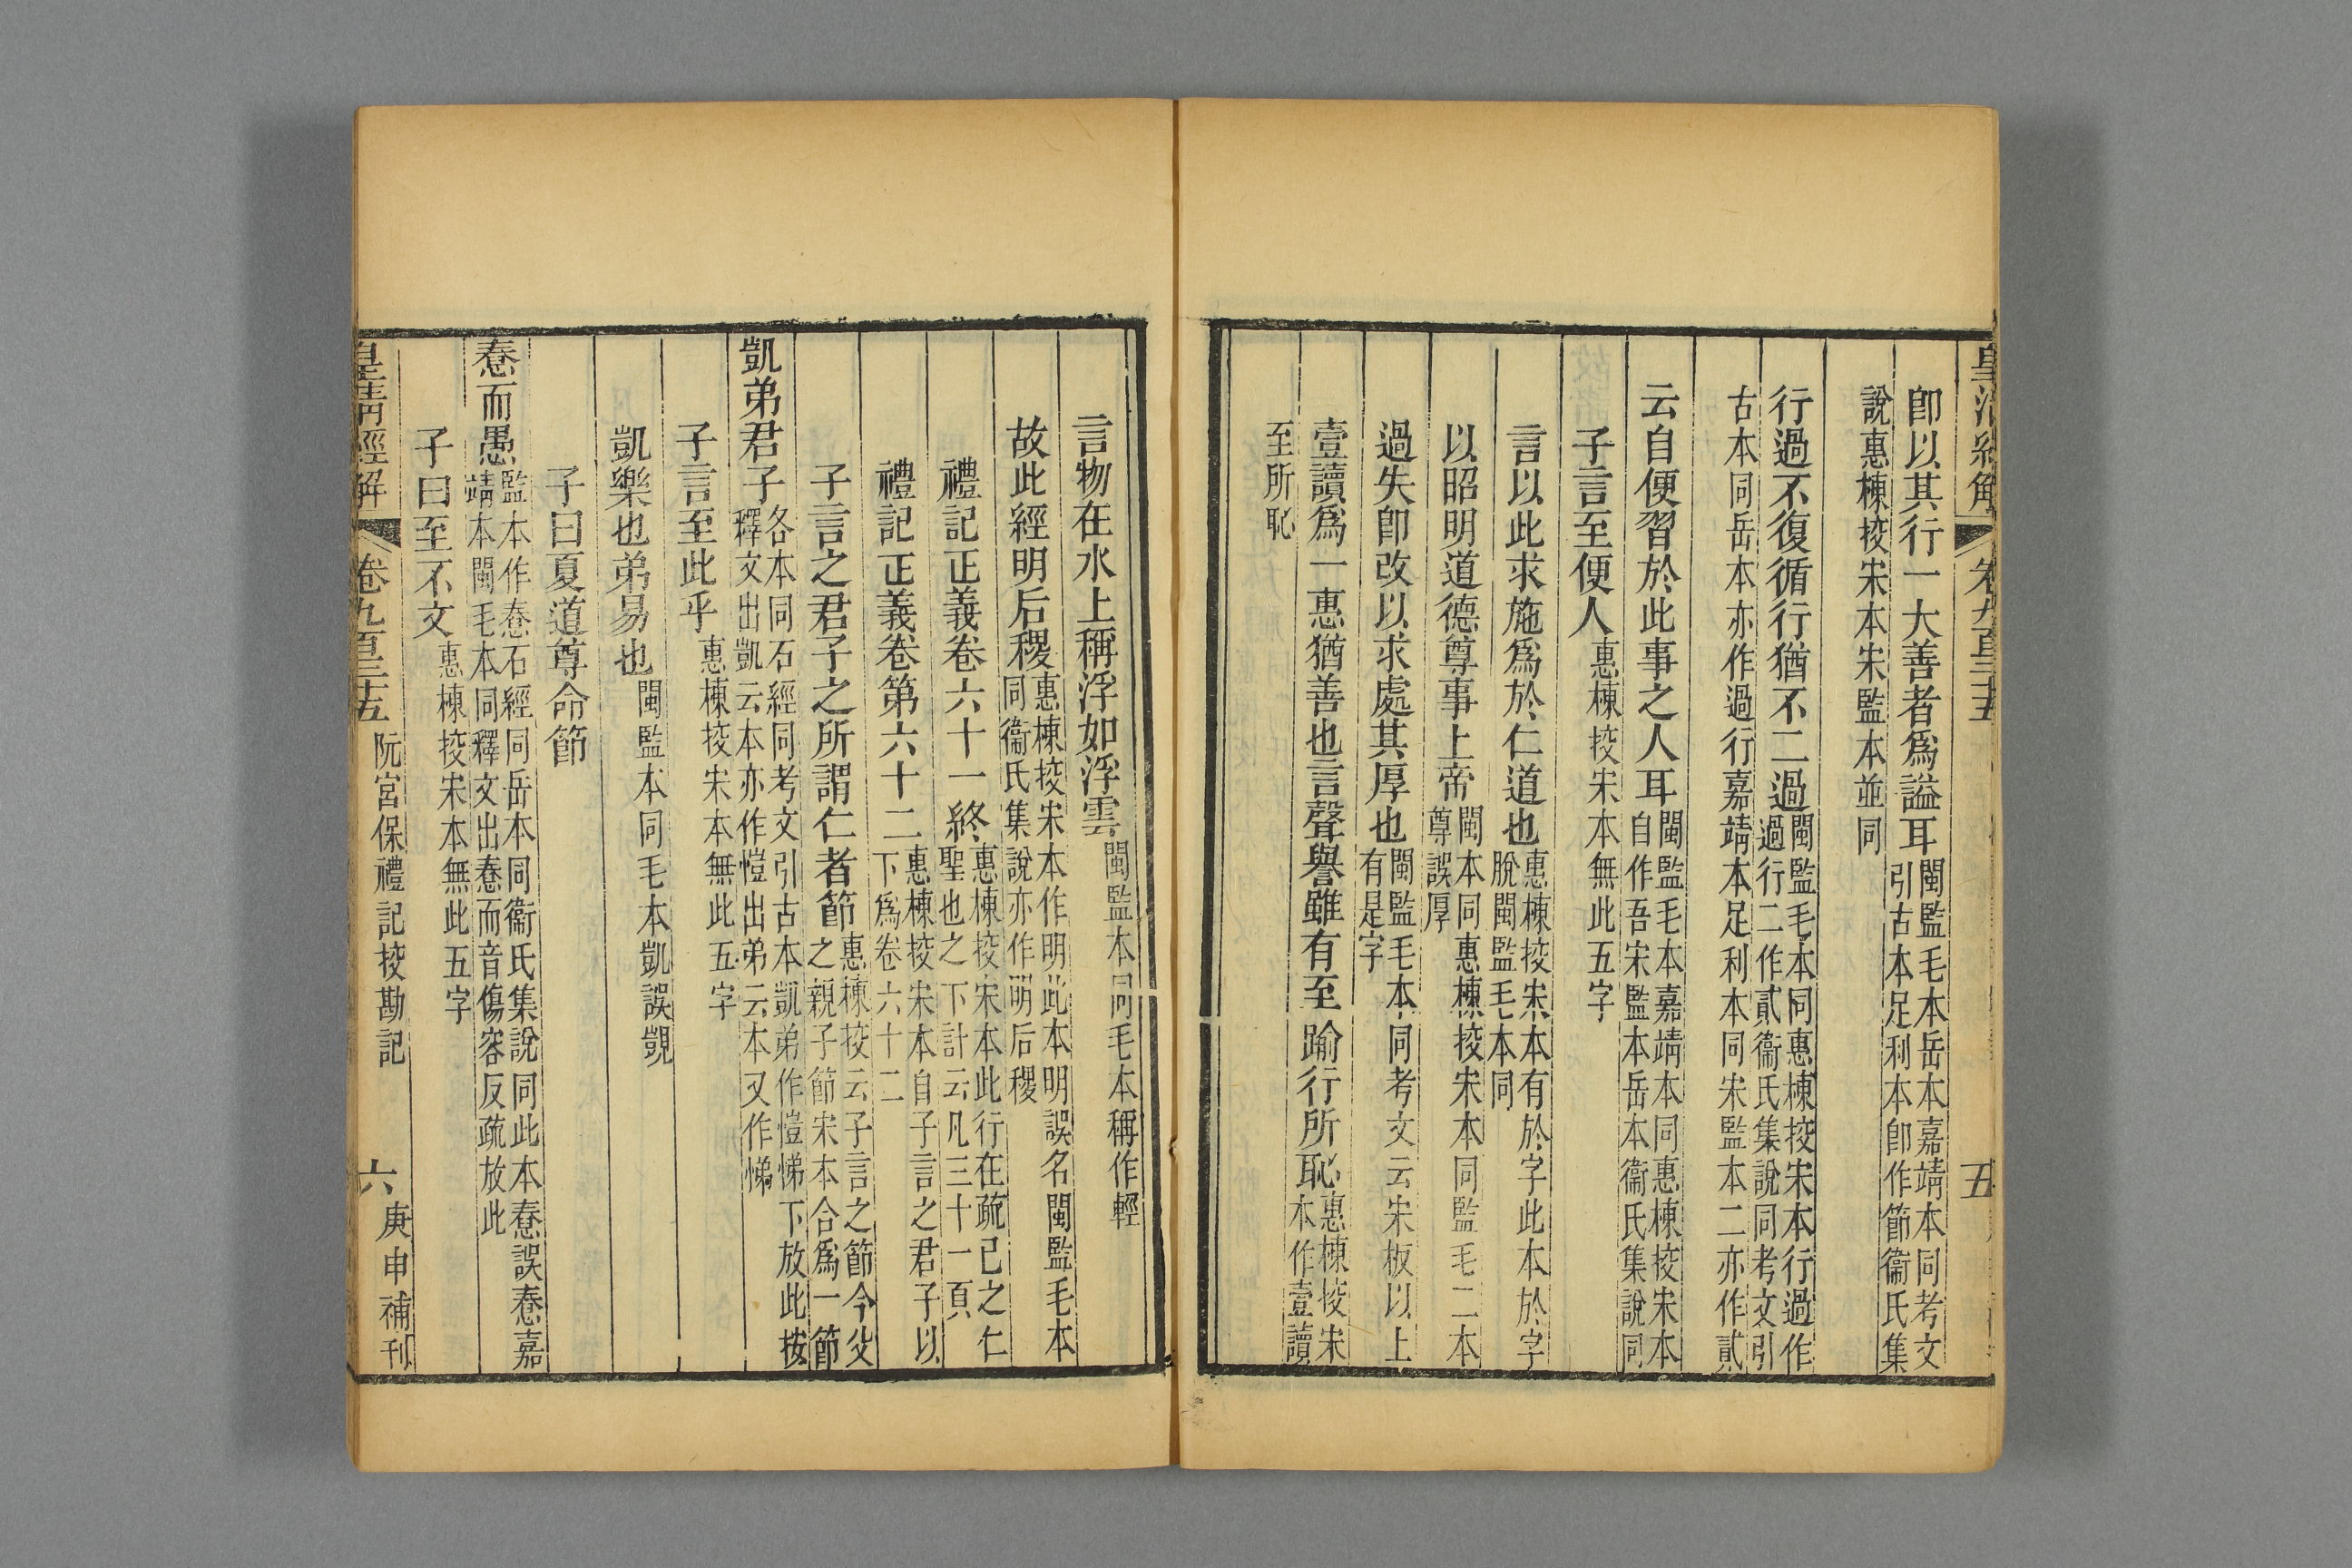 皇清經解 卷九百三十五 五
卽以其行一大善者爲謚耳閩監毛本岳本嘉靖本同考文引古本足利本卽作節衞氏集
說惠棟挍宋本宋監本並同
行過不復循行猶不二過閩監毛本同惠棟挍宋本行過作過行二作貳衞氏集說同考文引
古本同岳本亦作過行嘉靖本足利本同宋監本二亦作貳
云自便習於此事之人耳閩監毛本嘉靖本同惠棟挍宋本自作吾宋監本岳本衞氏集說同
子言至便人惠棟挍宋本無此五字
言以此求施爲於仁道也惠棟挍宋本有於字此本於字脫閩監毛本同
以昭明道德尊事上帝閩本同惠棟挍宋本同監毛二本尊誤厚
過失卽改以求處其厚也閩監毛本同考文云宋板以上有是字
壹讀爲一惠猶善也言聲譽雖有至踰行所恥惠棟挍宋本作壹讀
至所恥
言物在水上稱浮如浮雲閩監本同毛本稱作輕
故此經明后稷惠棟挍宋本作明此本明誤名閩監毛本同衞氏集說亦作明后稷
禮記正義卷六十一終惠棟挍宋本此行在疏已之仁聖也之下計云凡三十一頁
禮記正義卷第六十二惠棟挍宋本自子言之君子以下爲卷六十二
子言之君子之所謂仁者節惠棟挍云子言之節今父之親子節宋本合爲一節
凱弟君子各本同石經同考文引古本凱弟作愷悌下放此按釋文出凱云本亦作愷出弟云本又作悌
子言至此乎惠棟挍宋本無此五字
凱樂也弟易也閩監本同毛本凱誤覬
子曰夏道尊命節
惷而愚監本作惷石經同岳本同衞氏集說同此本惷誤憃嘉靖本閩毛本同釋文出惷而音傷容反疏放此
子曰至不文惠棟挍宋本無此五字
皇清經解 卷九百三十五 阮宮保禮記挍勘記 六 庚申補刊